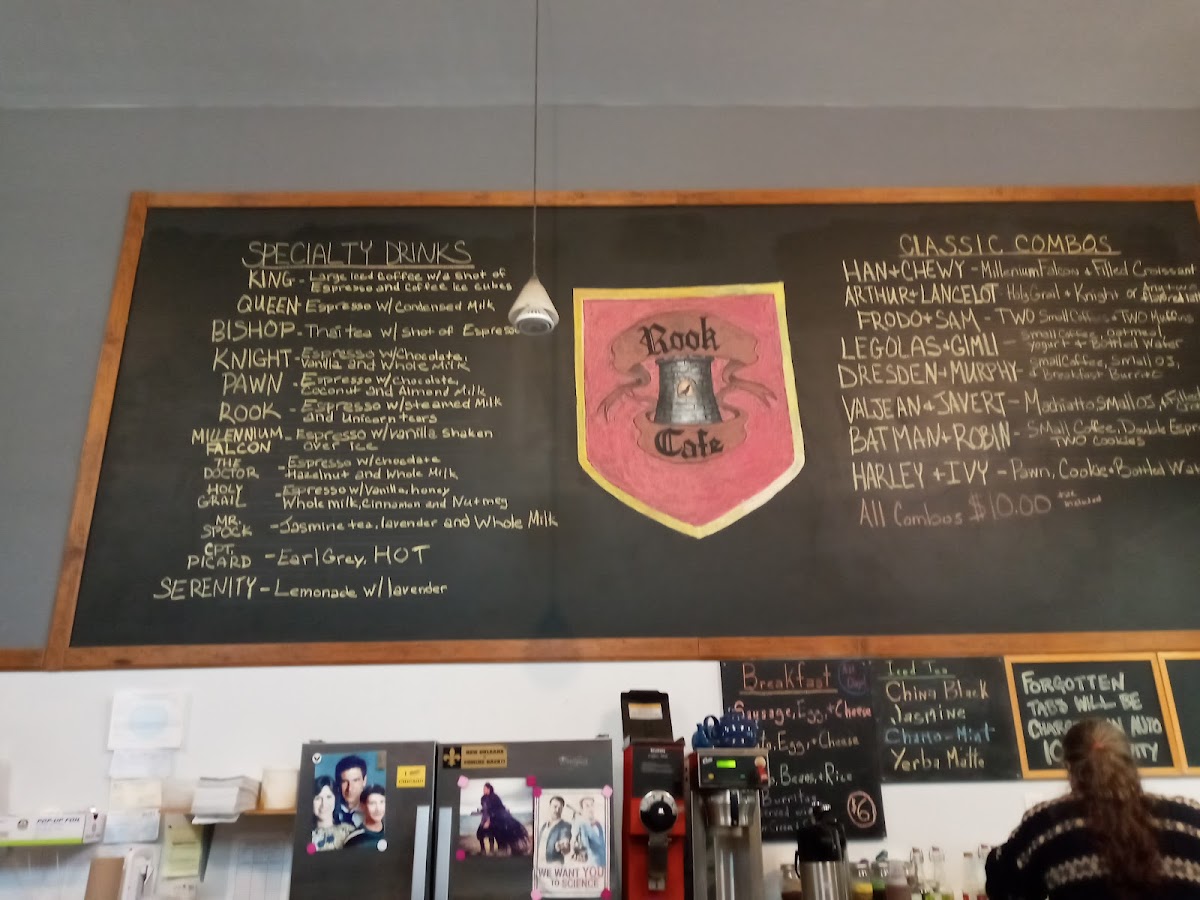 SPECIALTY DRINKS
KING - Large Iced Coffee w/a shot of
Espresso and Coffee Ice cubes
QUEEN - Espresso w/Condensed Milk
BISHOP - Thai tea w/ shot of Espresso
KNIGHT - Espresso w/Chocolate,
Vanilla and Whole Milk
PAWN - Espresso w/Chocolate,
Coconut and Almond Milk
ROOK - Espresso w/steamed Milk
and Unicorn tears
MILLENNIUM FALCON - Espresso w/Vanilla Shaken
over ice
THE DOCTOR - Espresso w/Chocolate
Hazelnut and Whole Milk
HOLY GRAIL - Espresso w/Vanilla, honey
Whole milk, Cinnamon and Nutmeg
MR. SPOCK - Jasmine tea, lavender and Whole Milk
CPT. PICARD - Earl Grey, HOT
SERENITY - Lemonade w/lavender
Rook
Cafe
CLASSIC COMBOS
HAN + CHEWY - Millenium Falcon + Filled Croissant
ARTHUR + LANCELOT - Holy Grail + Knight or
FRODO + SAM - TWO Small Coffees + TWO Muffins
LEGOLAS + GIMLI - Small Coffee, oatmeal
yogurt + Bottled Water
DRESDEN + MURPHY - Small Coffee, Small OJ,
+ Breakfast Burrito
VALJEAN + JAVERT - Machiatto, SMall OJ, + Filled
BATMAN + ROBIN - SMall Coffee, Double Espr
TWO Cookies
HARLEY + IVY - Pawn, Cookie + Bottled Wat
All Combos $10.00 tax included
Breakfast
All Day!
Sausage, Egg, + Cheese
Egg, + Cheese
Beans, + Rice
Burritos
$6
Iced Tea
China Black
Jasmine
Charo-Mint
Yerba Matte
FORGOTTEN
TABS WILL BE
AUTO
POP-UP FOIL
NEW ORLEANS
WE WANT YOU
TO SCIENCE